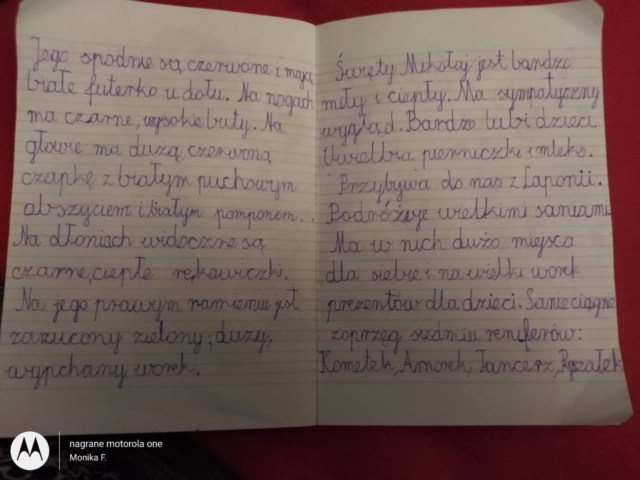 Jego spodnie są czerwone i mają
białe futerko u dołu. Na nogach
ma czarne, wysokie buty. Na
głowie ma dużą czerwoną
czapkę z białym puchowym
obszyciem i białym pomponem.
Na dłoniach widoczne są
czarne, ciepłe rękawiczki.
Na jego prawym ramieniu jest
zarzucony zielony, duży,
wypchany worek.
Święty Mikołaj jest bardzo
miły i ciepły. Ma sympatyczny
wygląd. Bardzo lubi dzieci.
Uwielbia pierniczki i mleko.
Przybywa do nas z Laponii.
Podróżuje wielkimi saniami
Ma w nich dużo miejsca
dla siebie i na wielki worek
prezentów dla dzieci. Sanie ciągnie
zaprzęg siedmiu reniferów:
Kometek, Amorek, Tancerz, Pyszałek
nagrane motorola one
Monika F.